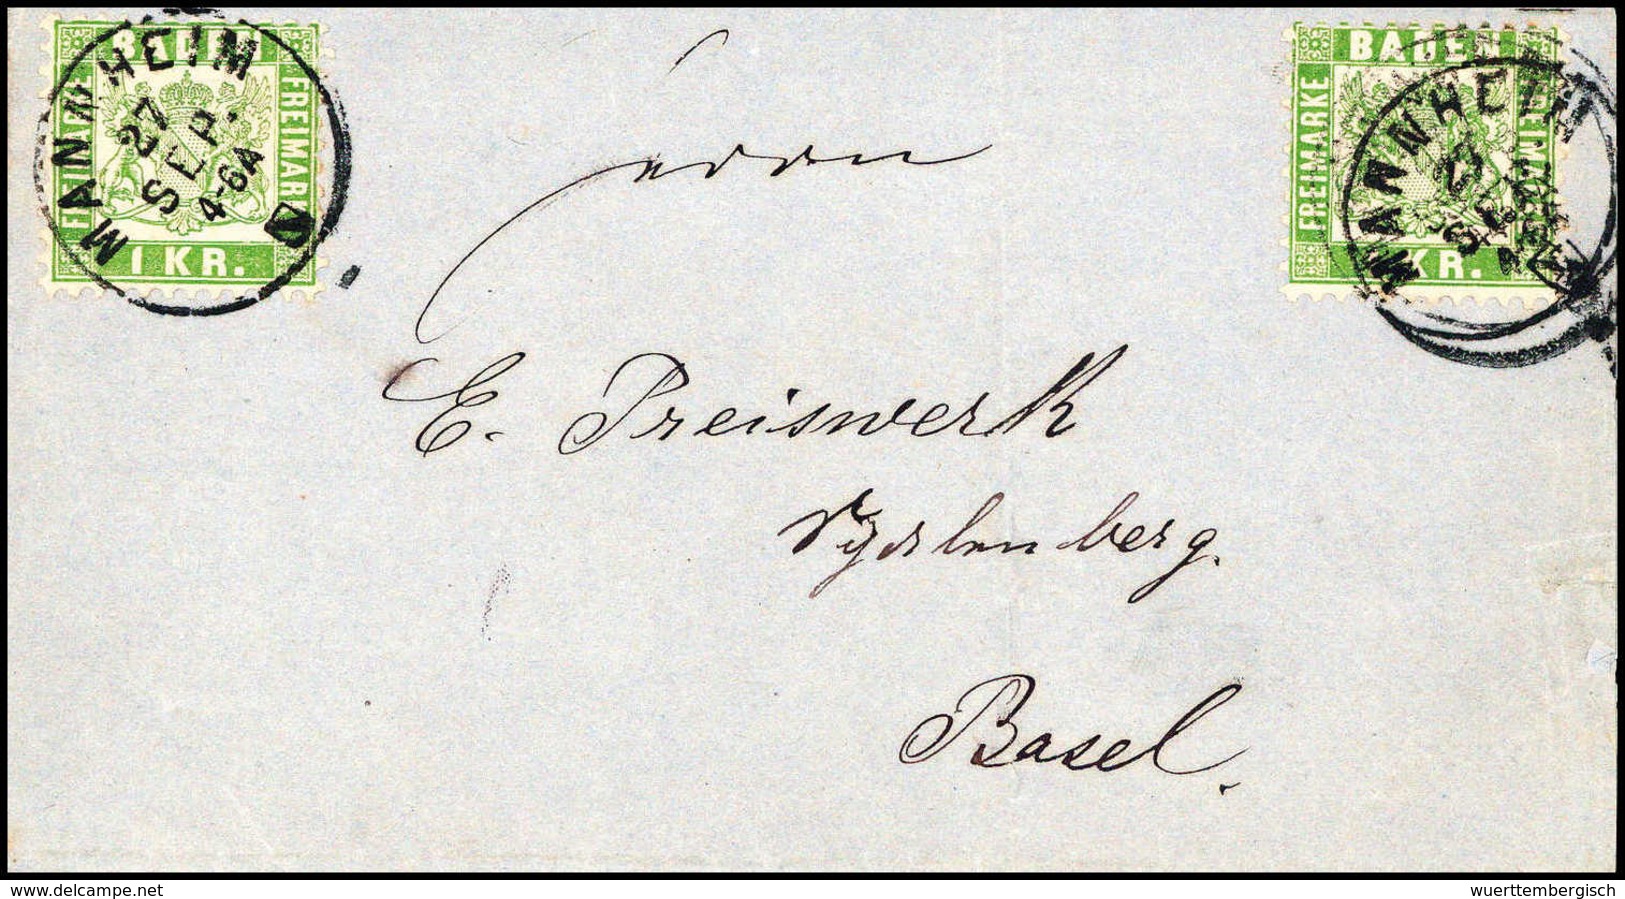 BADEN
FREIMARKE
FREIMARKE
1 KR.
MANNHEIM
27
SEP.
4-6A
BADEN
FREIMARKE
FREIMARKE
KR.
MANNHEIM
27
SEP.
Herrn
E. Preiswerk
Basel.
delcampe.net
wuerttembergisch